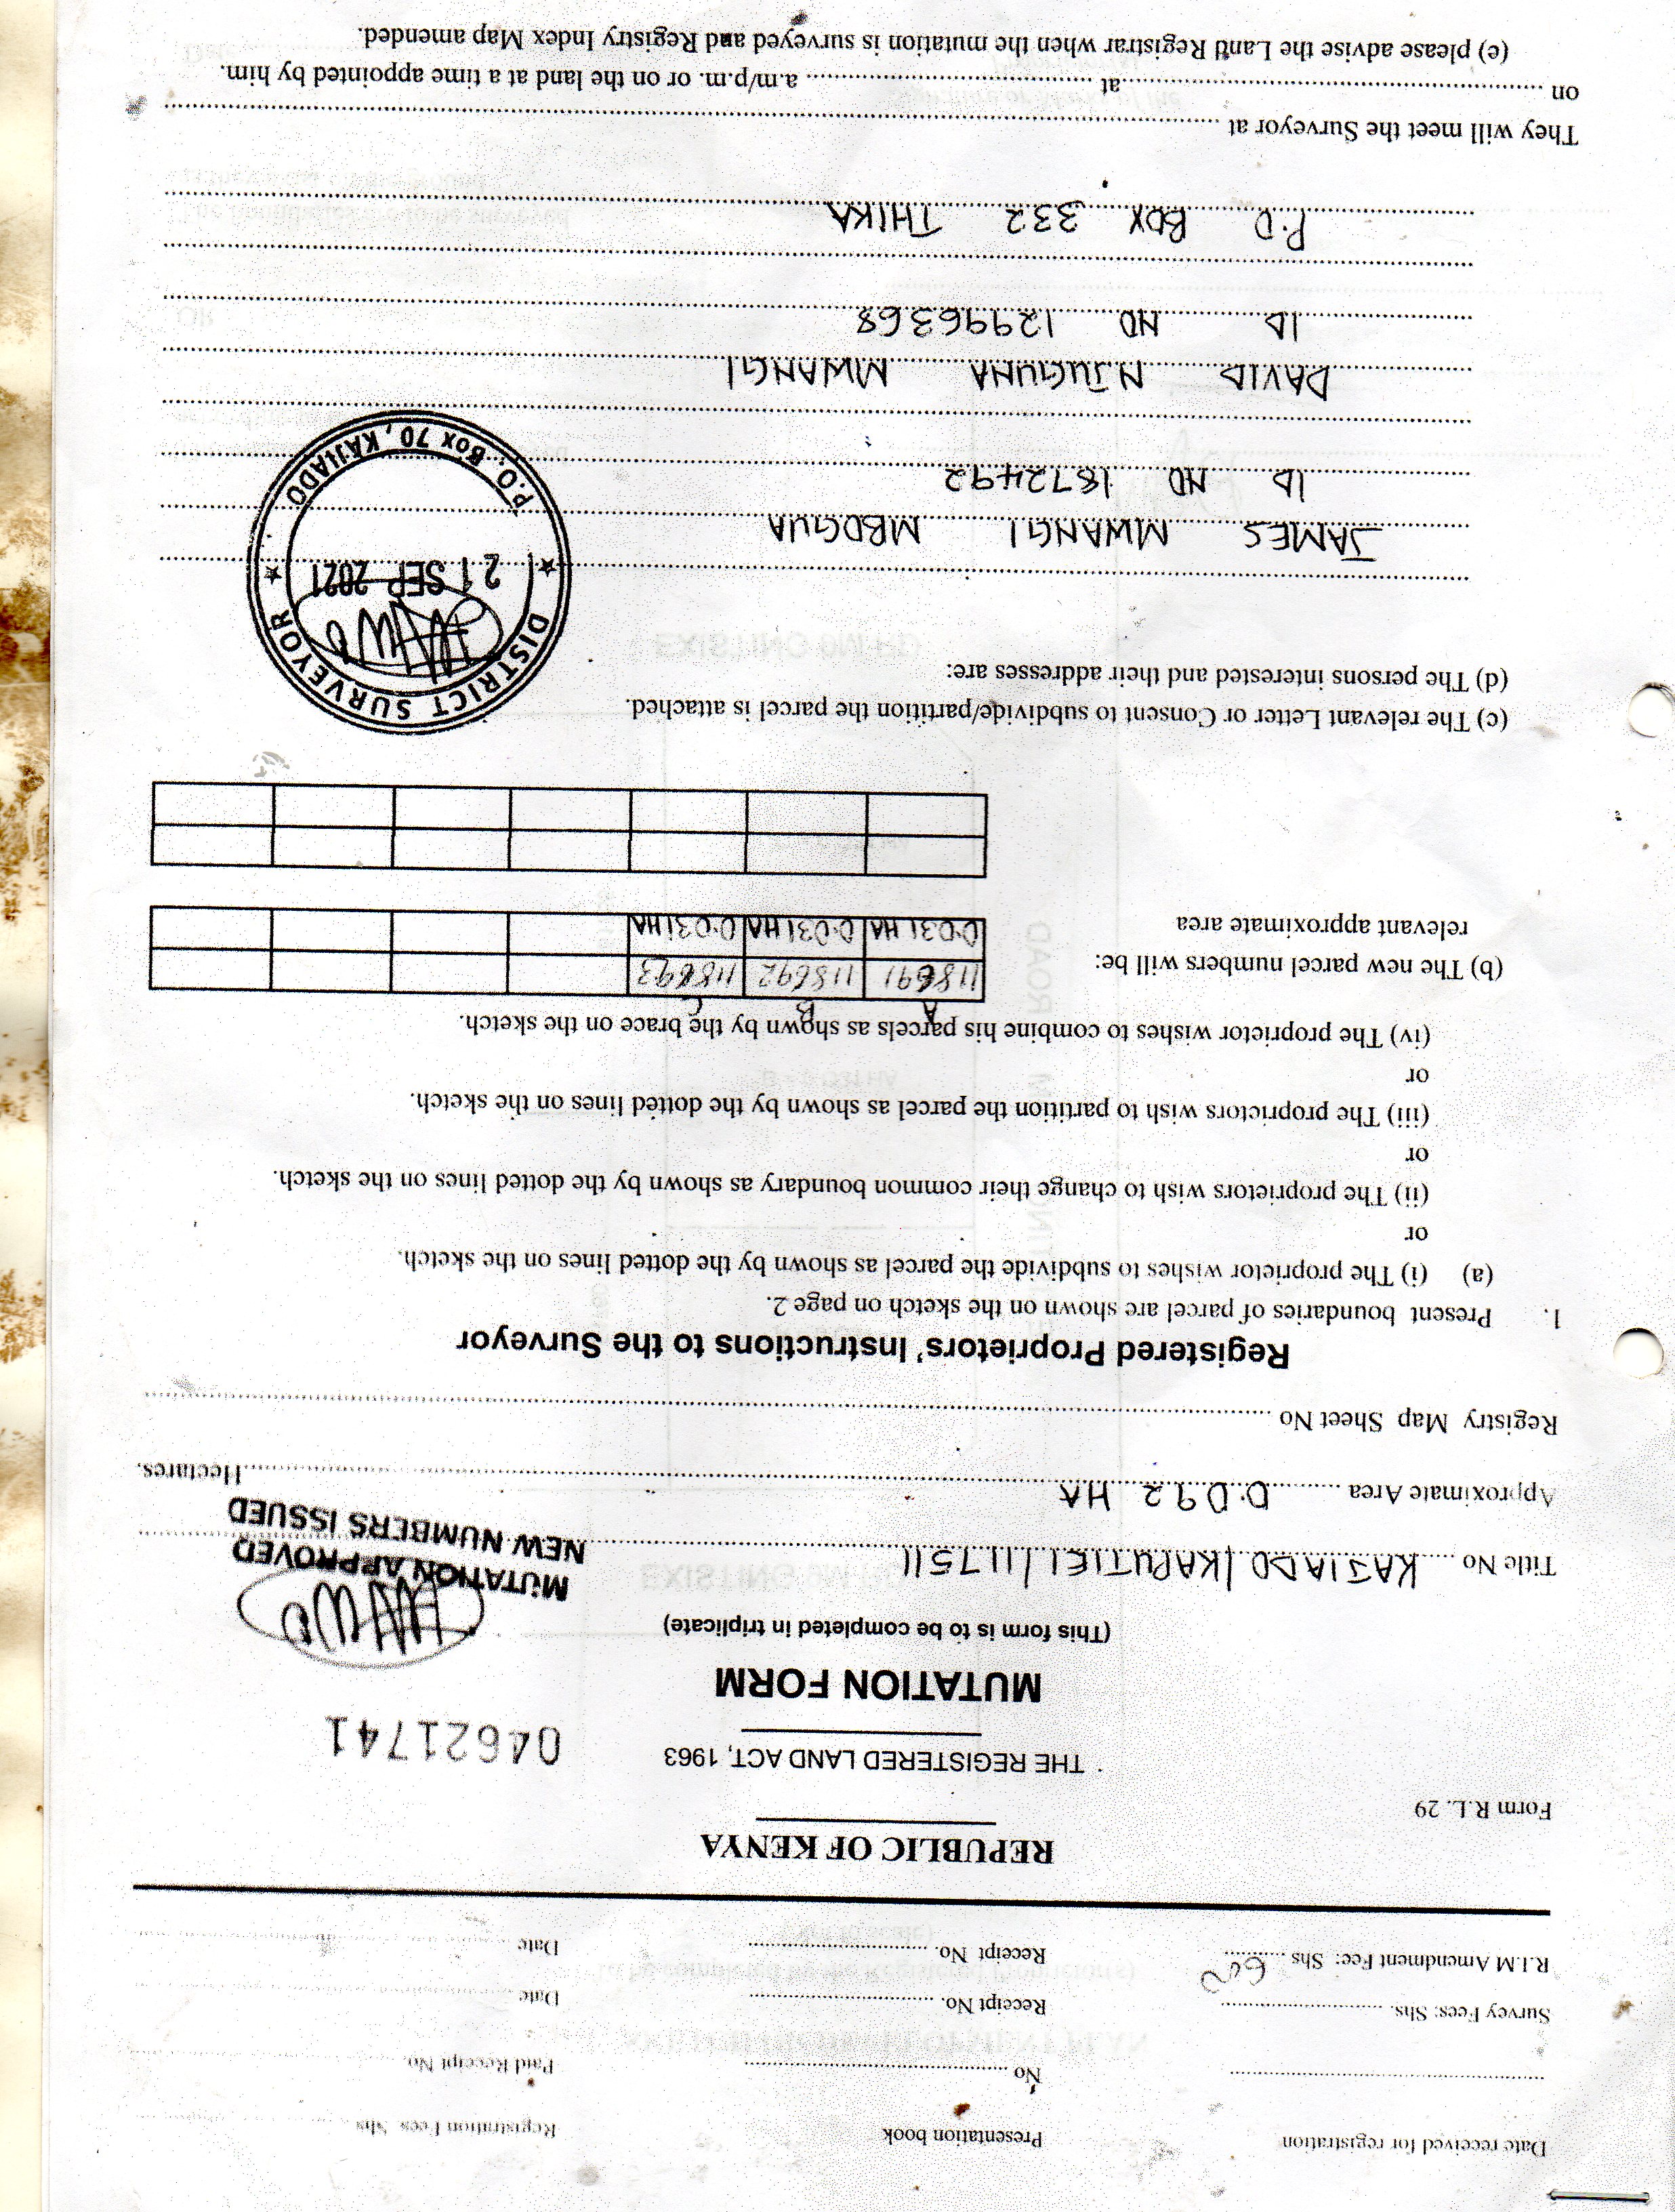 Date received for registration
Presentation book
Registration Fees Shs
No
Paid Receipt No.
Survey Fees: Shs.
Receipt No.
Date
R.I.M Amendment Fee: Shs 600
Receipt No.
Date
REPUBLIC OF KENYA
Form R.L. 29
THE REGISTERED LAND ACT, 1963
04621741
MUTATION FORM
(This form is to be completed in triplicate)
MUTATION APPROVED
NEW NUMBERS ISSUED
Title No KAJIADO/KAPUTIEI/117511
Approximate Area 0.092 HA Hectares.
Registry Map Sheet No
Registered Proprietors' Instructions to the Surveyor
1. Present boundaries of parcel are shown on the sketch on page 2.
(a) (i) The proprietor wishes to subdivide the parcel as shown by the dotted lines on the sketch.
or
(ii) The proprietors wish to change their common boundary as shown by the dotted lines on the sketch.
or
(iii) The proprietors wish to partition the parcel as shown by the dotted lines on the sketch.
or
(iv) The proprietor wishes to combine his parcels as shown by the brace on the sketch.
A B C
(b) The new parcel numbers will be: 118691 118692 118693
relevant approximate area 0.031 HA 0.031 HA 0.031 HA
(c) The relevant Letter or Consent to subdivide/partition the parcel is attached.
(d) The persons interested and their addresses are:
DISTRICT SURVEYOR
21 SEP 2021
P.O. Box 70, KAJIADO
JAMES MWANGI MBOGUA
ID NO 1872492
DAVID NJUGUNA MWANGI
ID NO 12996368
P.O BOX 332 THIKA
They will meet the Surveyor at
on at a.m/p.m. or on the land at a time appointed by him.
(e) please advise the Land Registrar when the mutation is surveyed and Registry Index Map amended.